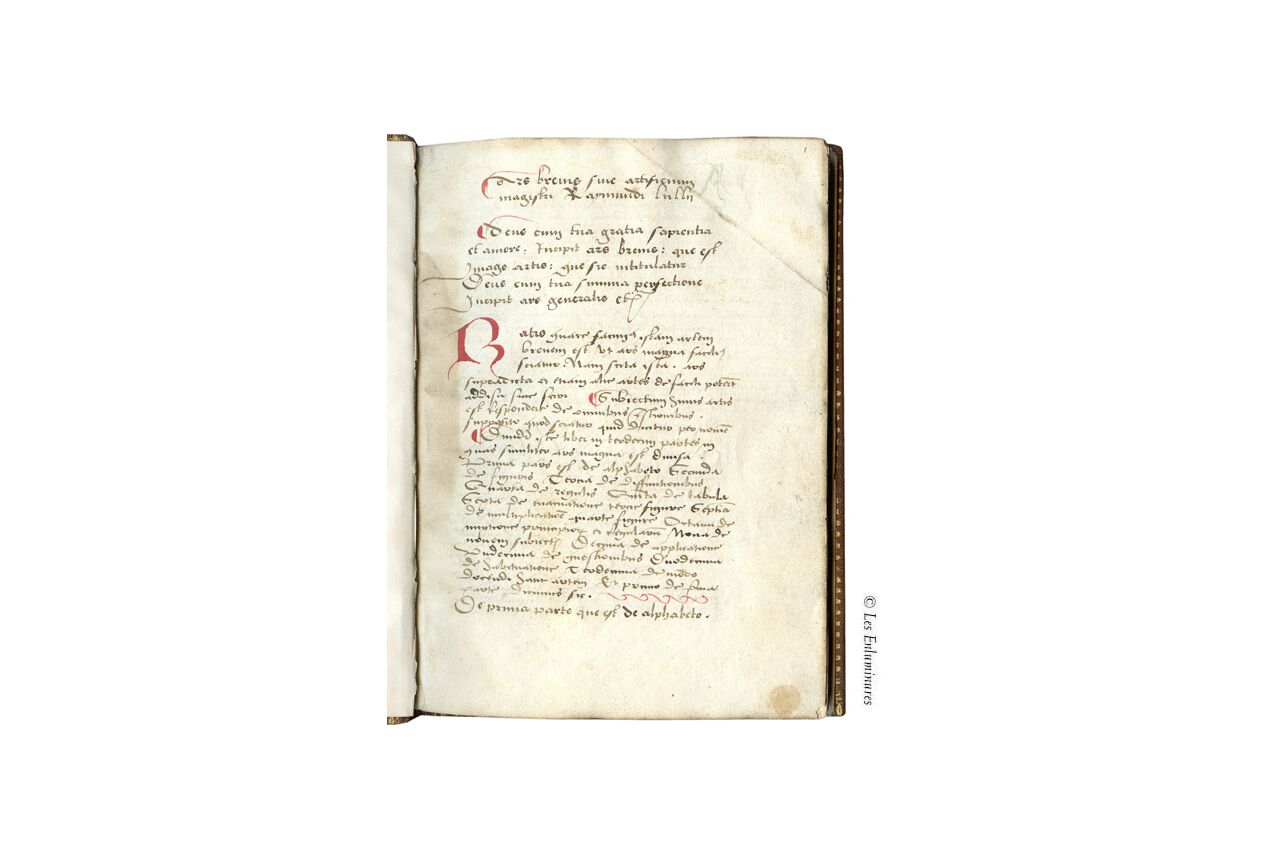 1
Ars brevis sive artificium
magistri Raymundi lullii
Deus cum tua gratia sapientia
et amore. Incipit ars brevis: que est
Imago artis: que sic intitulatur
Deus cum tua summa perfectione
Incipit ars generalis etc
Ratio quare facimus istam artem
brevem est ut ars magna facilius
sciatur. Nam scita ista. ars
supradicta et etiam alie artes de facili poterunt
addisci sive sciri Subiectum huius artis
est respondere de omnibus questionibus.
supposito quod sciatur quid dicitur per nomen
Dividitur iste liber in tredecim partes in
quas similiter ars magna est divisa
Prima pars est de alphabeto Secunda
de figuris Tercia de diffinitionibus
Quarta de regulis Quinta de tabula
Sexta de evacuatione tercie figure Septima
de multiplicatione quarte figure Octava de
mixtione principiorum et regularum Nona de
novem subiectis Decima de applicatione
Undecima de questionibus Duodecima
de habituatione Tredecima de modo
docendi hanc artem Et primo de prima
parte dicimus sic.
De prima parte que est de alphabeto.
© Les Enluminures